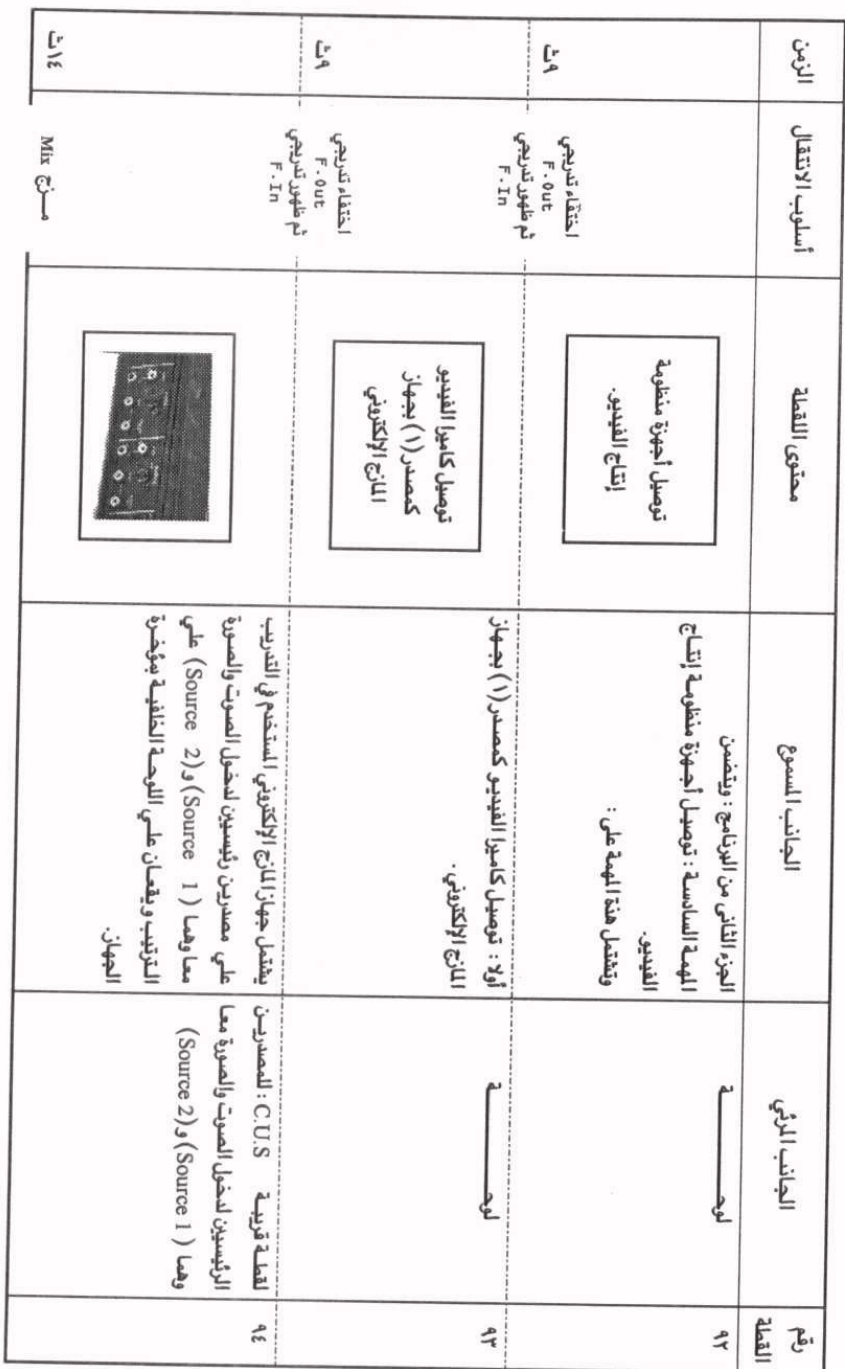 رقم القطة
الجانب المرئي
الجانب المسموع
محتوى اللقطة
أسلوب الانتقال
الزمن
٩٢
لوحـــــــة
الجزء الثاني من البرنامج : ويتضمن
المهمة السادسة : توصيل أجهزة منظومة إنتاج
الفيديو.
وتشتمل هذة المهمة على :
توصيل أجهزة منظومة
إنتاج الفيديو.
اختفاء تدريجي
F.Out
ثم ظهور تدريجي
F.In
٩ث
٩٣
لوحـــــــة
أولا : توصيل كاميرا الفيديو كمصدر (١) بجهاز
المازج الإلكتروني .
توصيل كاميرا الفيديو
كمصدر (١) بجهاز
المازج الإلكتروني
اختفاء تدريجي
F.Out
ثم ظهور تدريجي
F.In
٩ث
٩٤
لقطة قريبة C.U.S : للمصدرين
الرئيسيين لدخول الصوت والصورة معا
وهما (Source 1) و (Source 2)
يشتمل جهاز المازج الإلكتروني المستخدم في التدريب
علي مصدرين رئيسيين لدخول الصوت والصورة
معا وهما (Source 1) و (Source 2) علي
الترتيب ويقعان علي اللوحة الخلفية بمؤخرة
الجهاز.
مـزج Mix
١٤ث